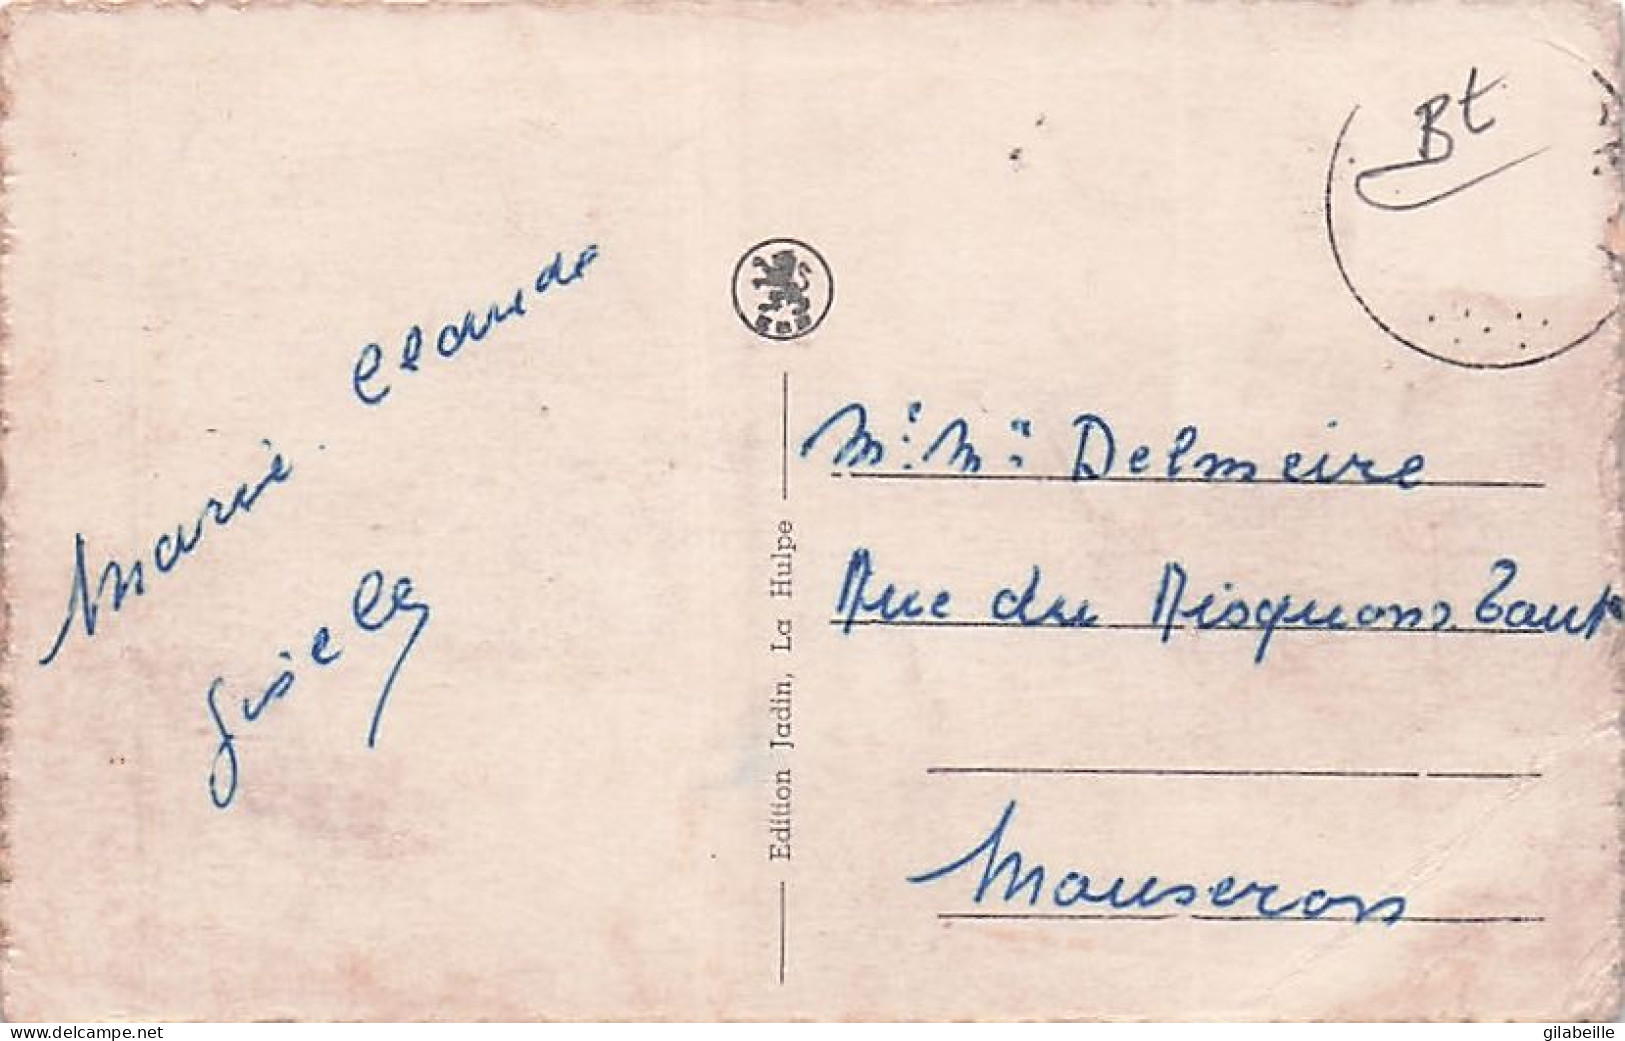 Bt
Marie. Claude
Gisele
Edition Jadin, La Hulpe
Mr. Mme Delmeire
Rue du Risquons Tout
Mouseron
www.delcampe.net
gilabeille